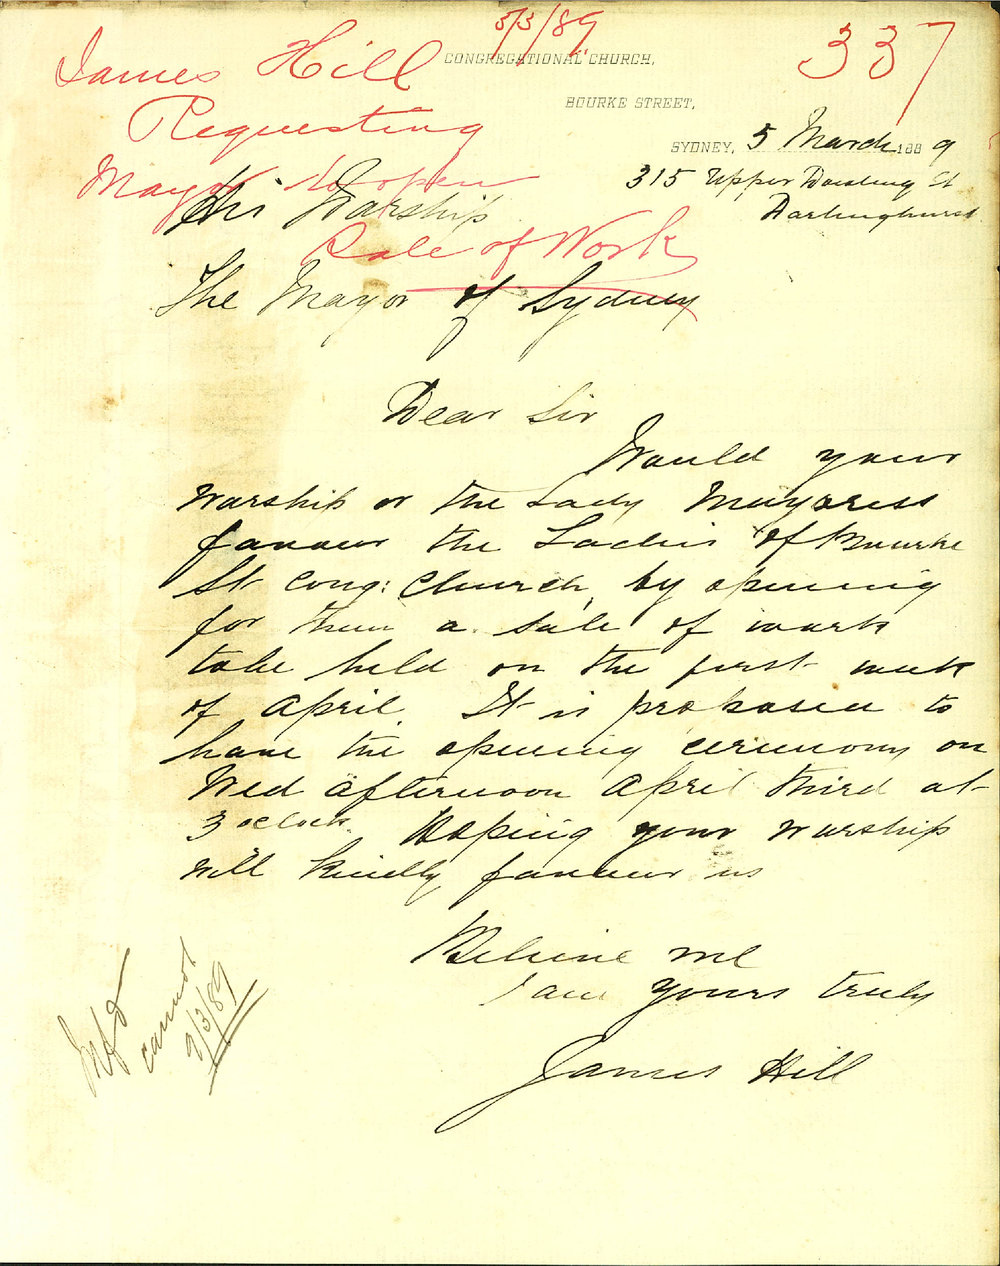 5/3/89
337
James Hill
Requesting
Mayor to open
Sale of Work
CONGREGATIONAL CHURCH,
BOURKE STREET,
SYDNEY, 5 March 1889
315 Upper Dowling St
Darlinghurst
His Worship
The Mayor of Sydney
Dear Sir
Would your
Worship or the Lady Mayoress
favour the Ladies of Bourke
St Cong: Church, by opening
for them a sale of work
to be held on the first week
of April. It is proposed to
have the opening ceremony on
Wed afternoon April third at
3 o'clock. Hoping your worship
will kindly favour us
Believe me
I am yours truly
James Hill
Infd
cannot
9/3/89